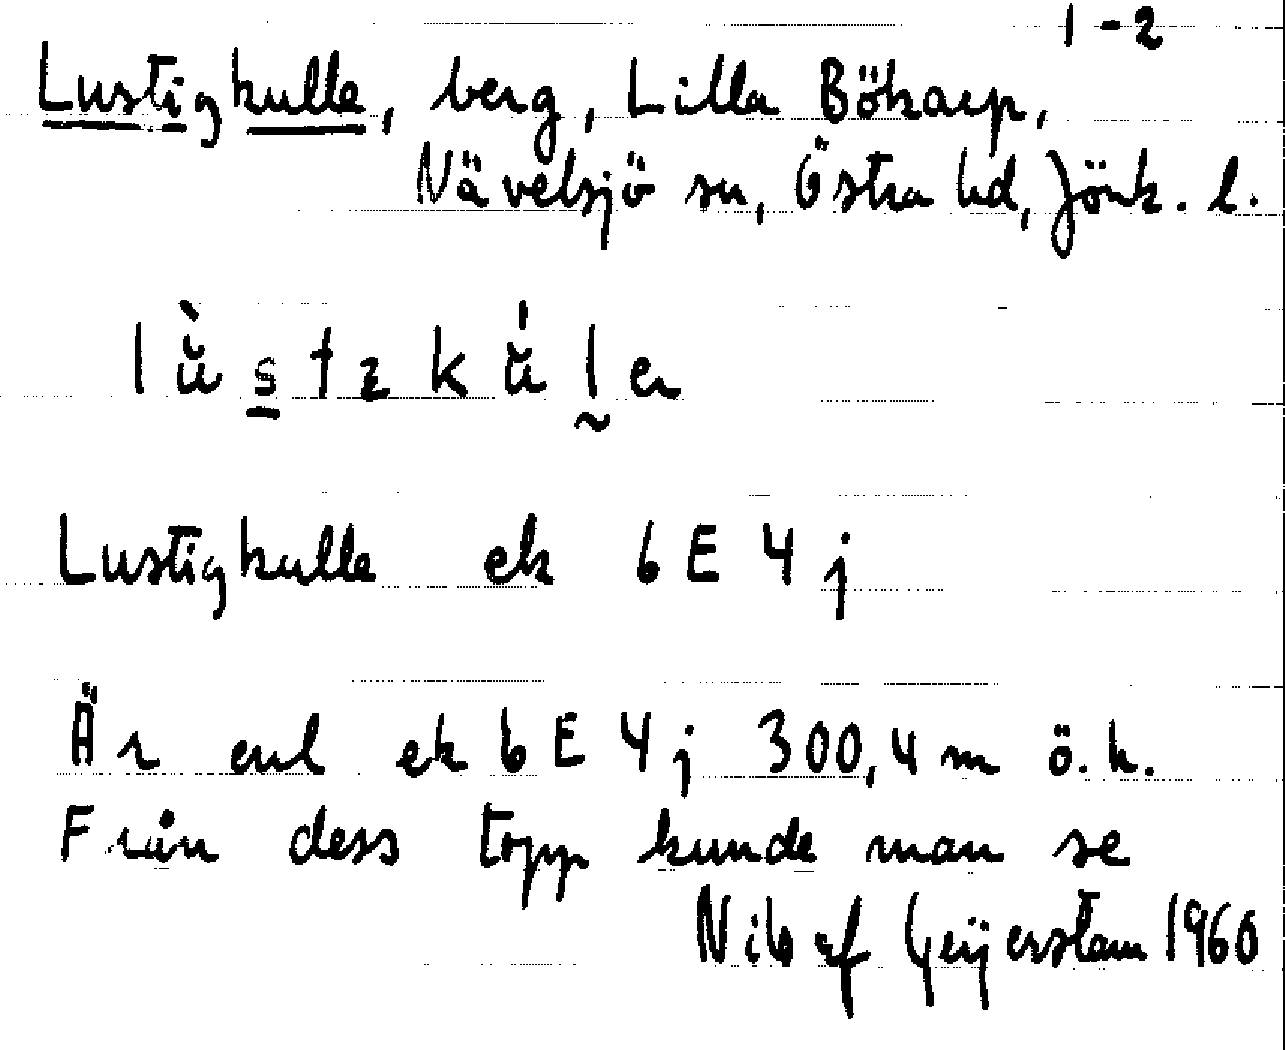 1-2
Lustigkulle, berg, Lilla Bökarp,
Nävelsjö sn, Östra hd, Jönk. l.
Lustigkulle ek 6E4j
Är enl ek 6E4j 300,4 m ö. h.
Från dess topp kunde man se
Nils af Geijerstam 1960